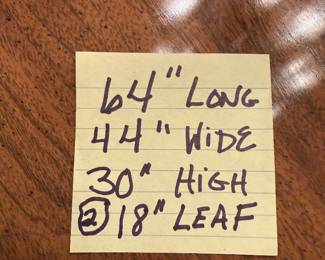 64" LONG
44" WIDE
30" HIGH
② 18" LEAF